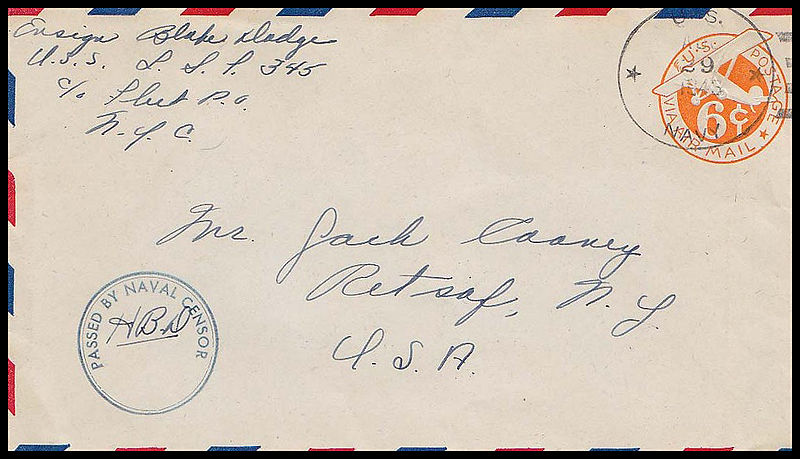 Ensign Blake Dodge
U.S.S. L.S.T. 345
c/o Fleet P.O.
N.Y.C.
U. S.
29
NAVY
U.S. POSTAGE
6¢
VIA AIR MAIL
Mr. Jack Cooney
Retsof, N.Y.
U.S.A.
PASSED BY NAVAL CENSOR
HBD